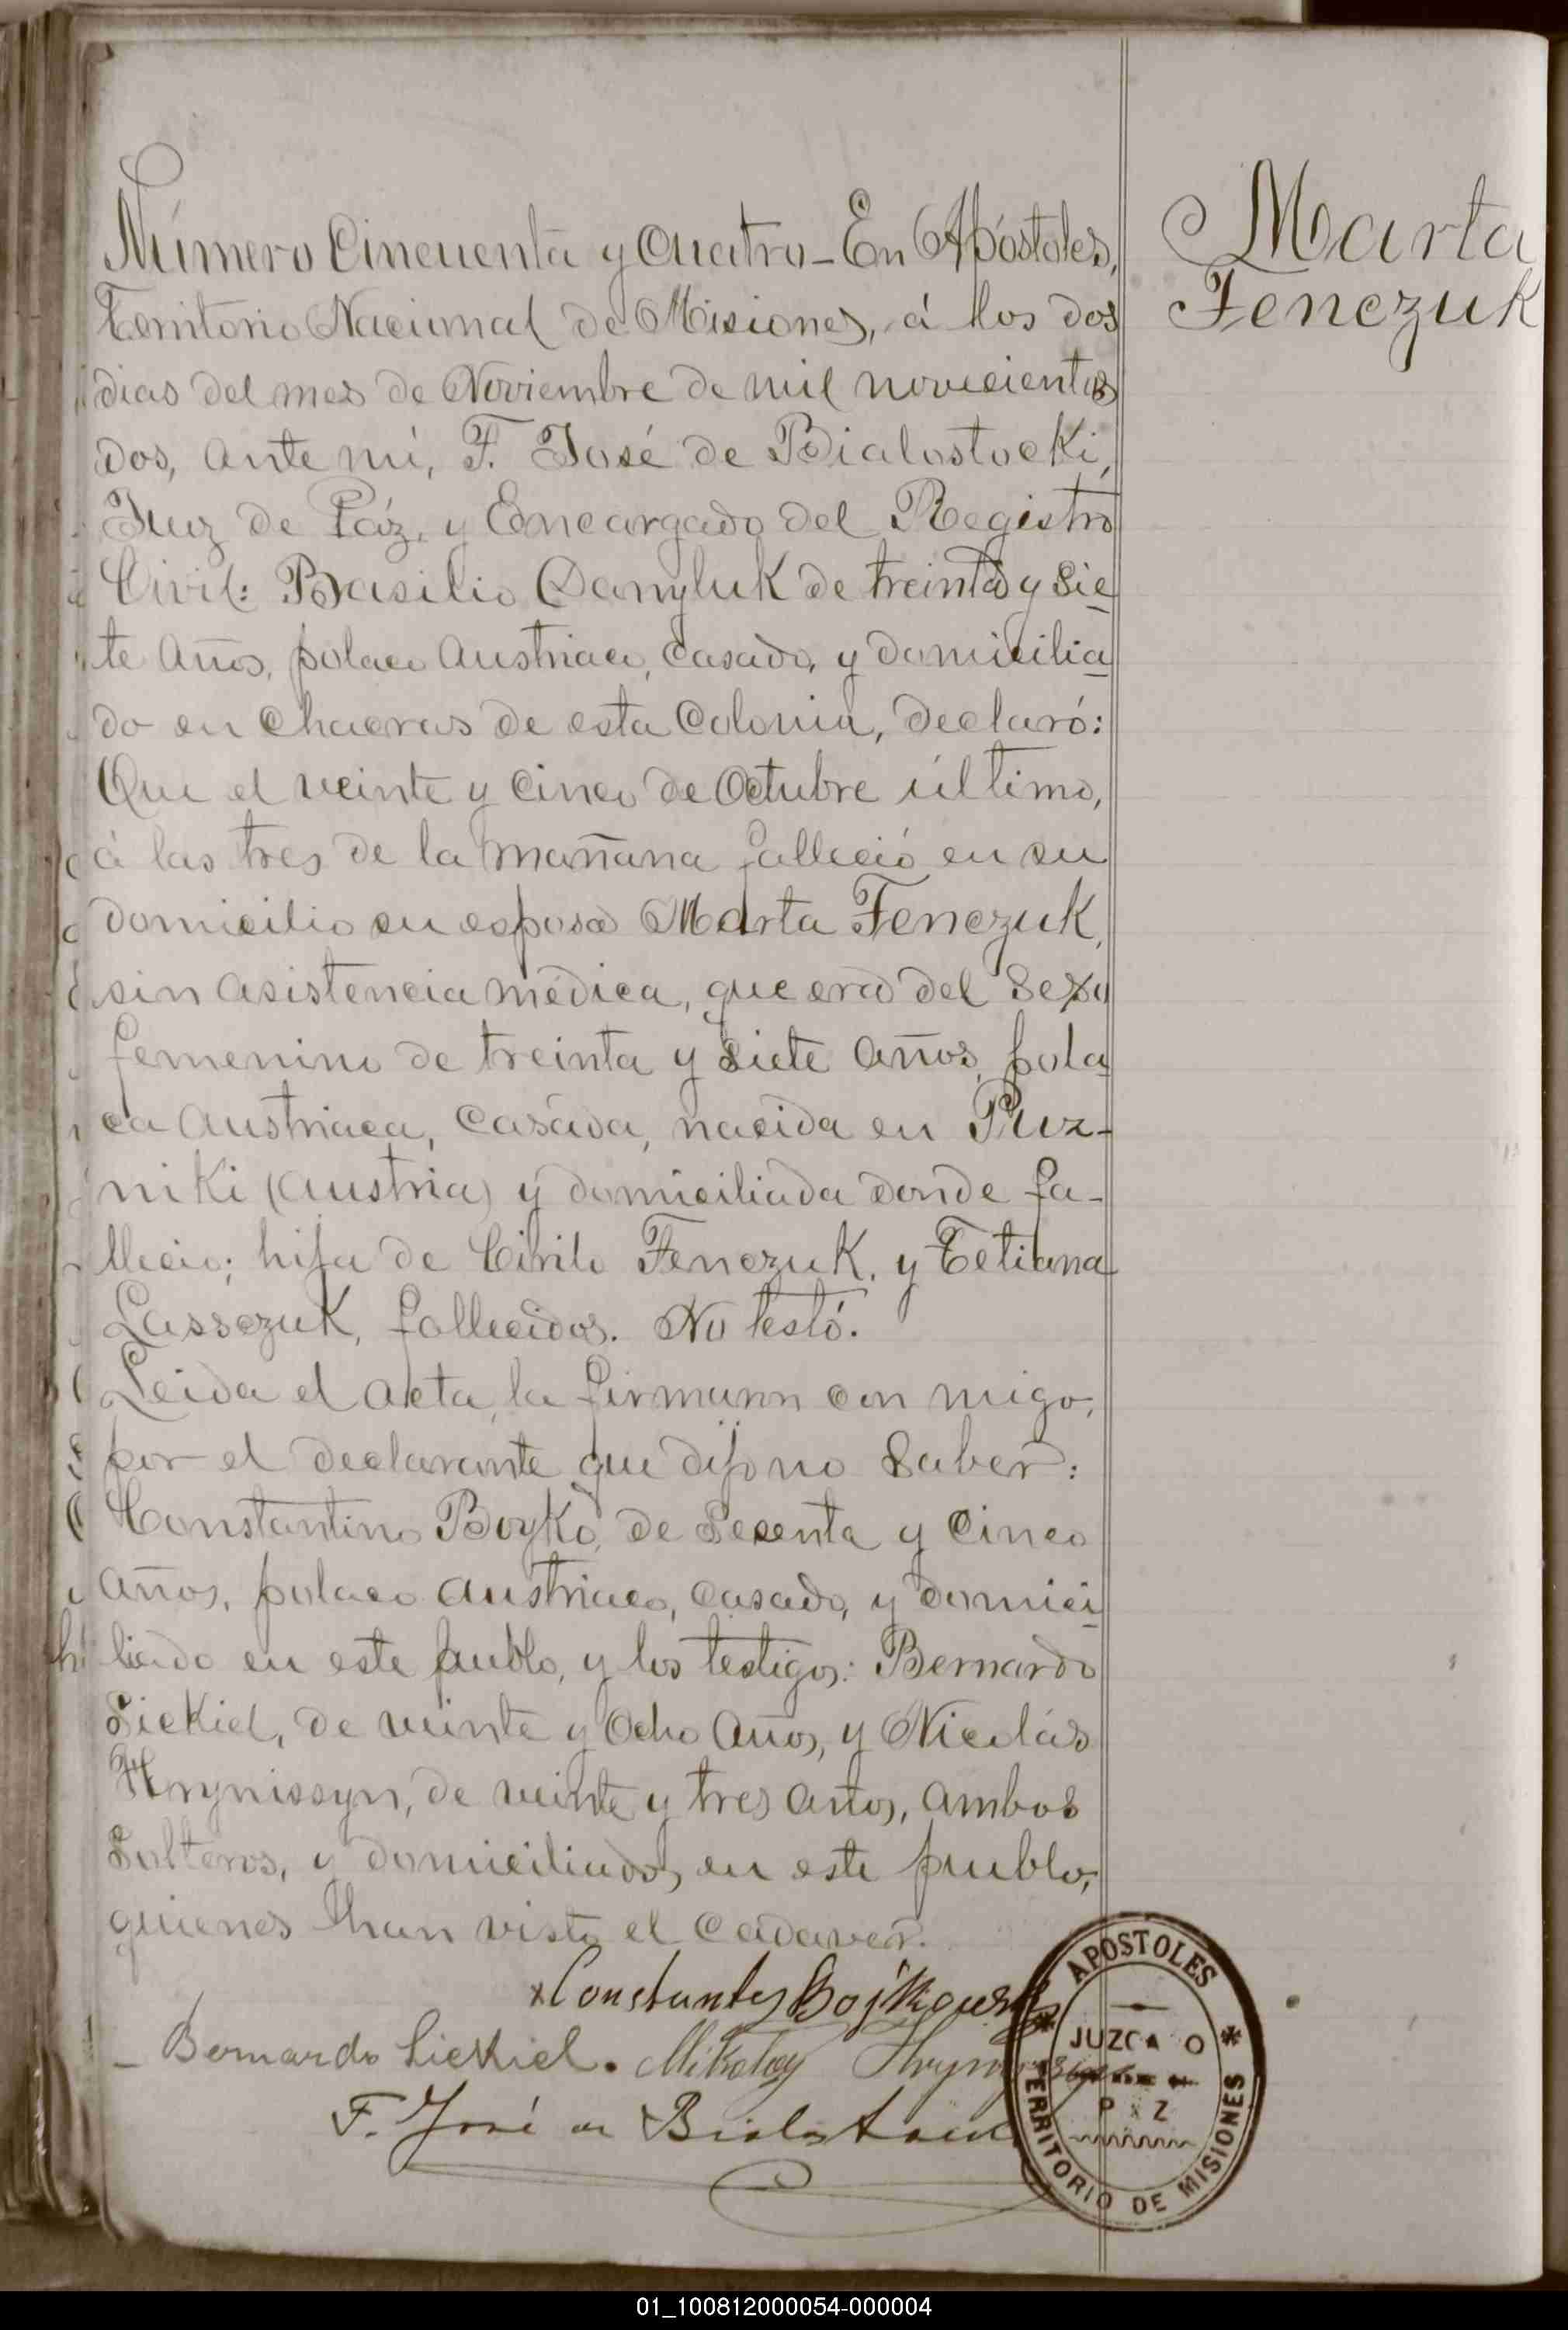 Marta
Fenczuk
Número Cincuenta y Cuatro - En Apóstoles,
Territorio Nacional de Misiones, á los dos
dias del mes de Noviembre de mil novecientos
dos, ante mí, F. José de Bialostocki,
Juez de Páz, y Encargado del Registro
Civil: Basilio Danyluk de treinta y sie
te años, polaco austriaco, casado, y domicilia
do en chacras de esta Colonia, declaró:
Que el veinte y cinco de Octubre último,
á las tres de la mañana falleció en su
domicilio su esposa Marta Fenczuk,
sin asistencia médica, que era del sexo
femenino de treinta y siete años, pola
ca austriaca, casada, nacida en Puz-
niki (Austria) y domiciliada donde fa-
lleció; hija de Cirilo Fenczuk, y Tetiana
Lassczuk, fallecidos. No testó.
Leida el acta, la firmaron con migo,
por el declarante que dijo no saber:
Constantino Boyko, de sesenta y cinco
años, polaco austriaco, casado, y domici
liado en este pueblo, y los testigos: Bernardo
Siekiel, de veinte y ocho años, y Nicolás
Hrynissyn, de veinte y tres años, ambos
solteros, y domiciliados en este pueblo,
quienes han visto el cadaver.
Bernardo Siekiel. Mikolay
F. José de
APOSTOLES
JUZGADO
PAZ
TERRITORIO DE MISIONES
01_100812000054-000004